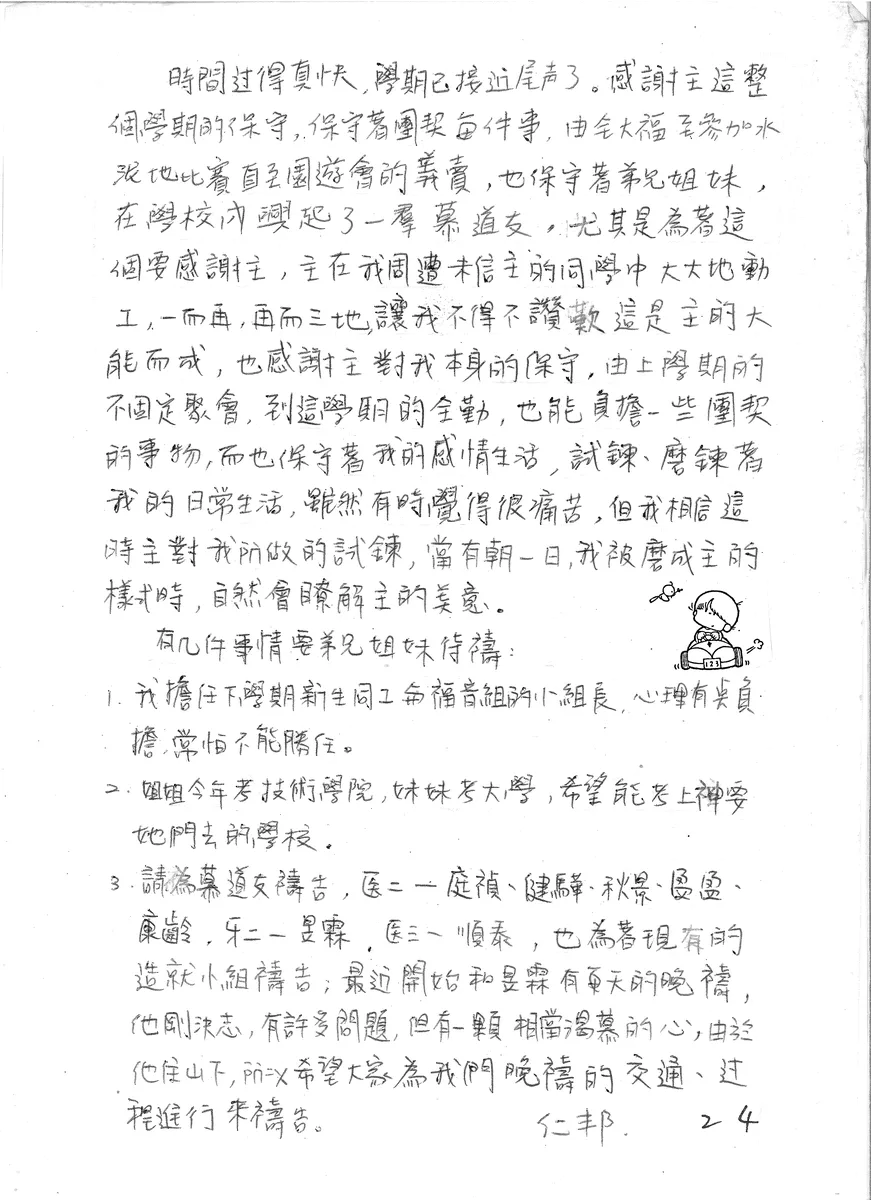 時間过得真快,學期已接近尾声了。感謝主這整
個學期的保守,保守著團契每件事,由全大福至參加水
泥地比賽直至園遊會的義賣,也保守著弟兄姐妹,
在學校內興起了一羣慕道友,尤其是為著這
個要感謝主,主在我周遭未信主的同學中大大地動
工,一而再,再而三地,讓我不得不讚歎這是主的大
能而成,也感謝主對我本身的保守,由上學期的
不固定聚會,到這學期的全勤,也能負擔一些團契
的事物,而也保守著我的感情生活,試鍊、磨鍊著
我的日常生活,雖然有時覺得很痛苦,但我相信這
時主對我所做的試鍊,當有朝一日,我被磨成主的
樣式時,自然會瞭解主的美意。
有几件事情要弟兄姐妹代禱:
123
1. 我擔任下學期新生同工和福音組的小組長,心理有点負
擔,常怕不能勝任。
2. 姐姐今年考技術學院,妹妹考大學,希望能考上神要
她們去的學校。
3. 請為慕道友禱告,医二一庭禎、健驊、秋景、盈盈、
康齡,牙二一昱霖,医三一順泰,也為著現有的
造就小組禱告;最近開始和昱霖有每天的晚禱,
他剛決志,有許多問題,但有一顆相當渴慕的心,由於
他住山下,所以希望大家為我們晚禱的交通、过
程進行來禱告。
仁邦. 24